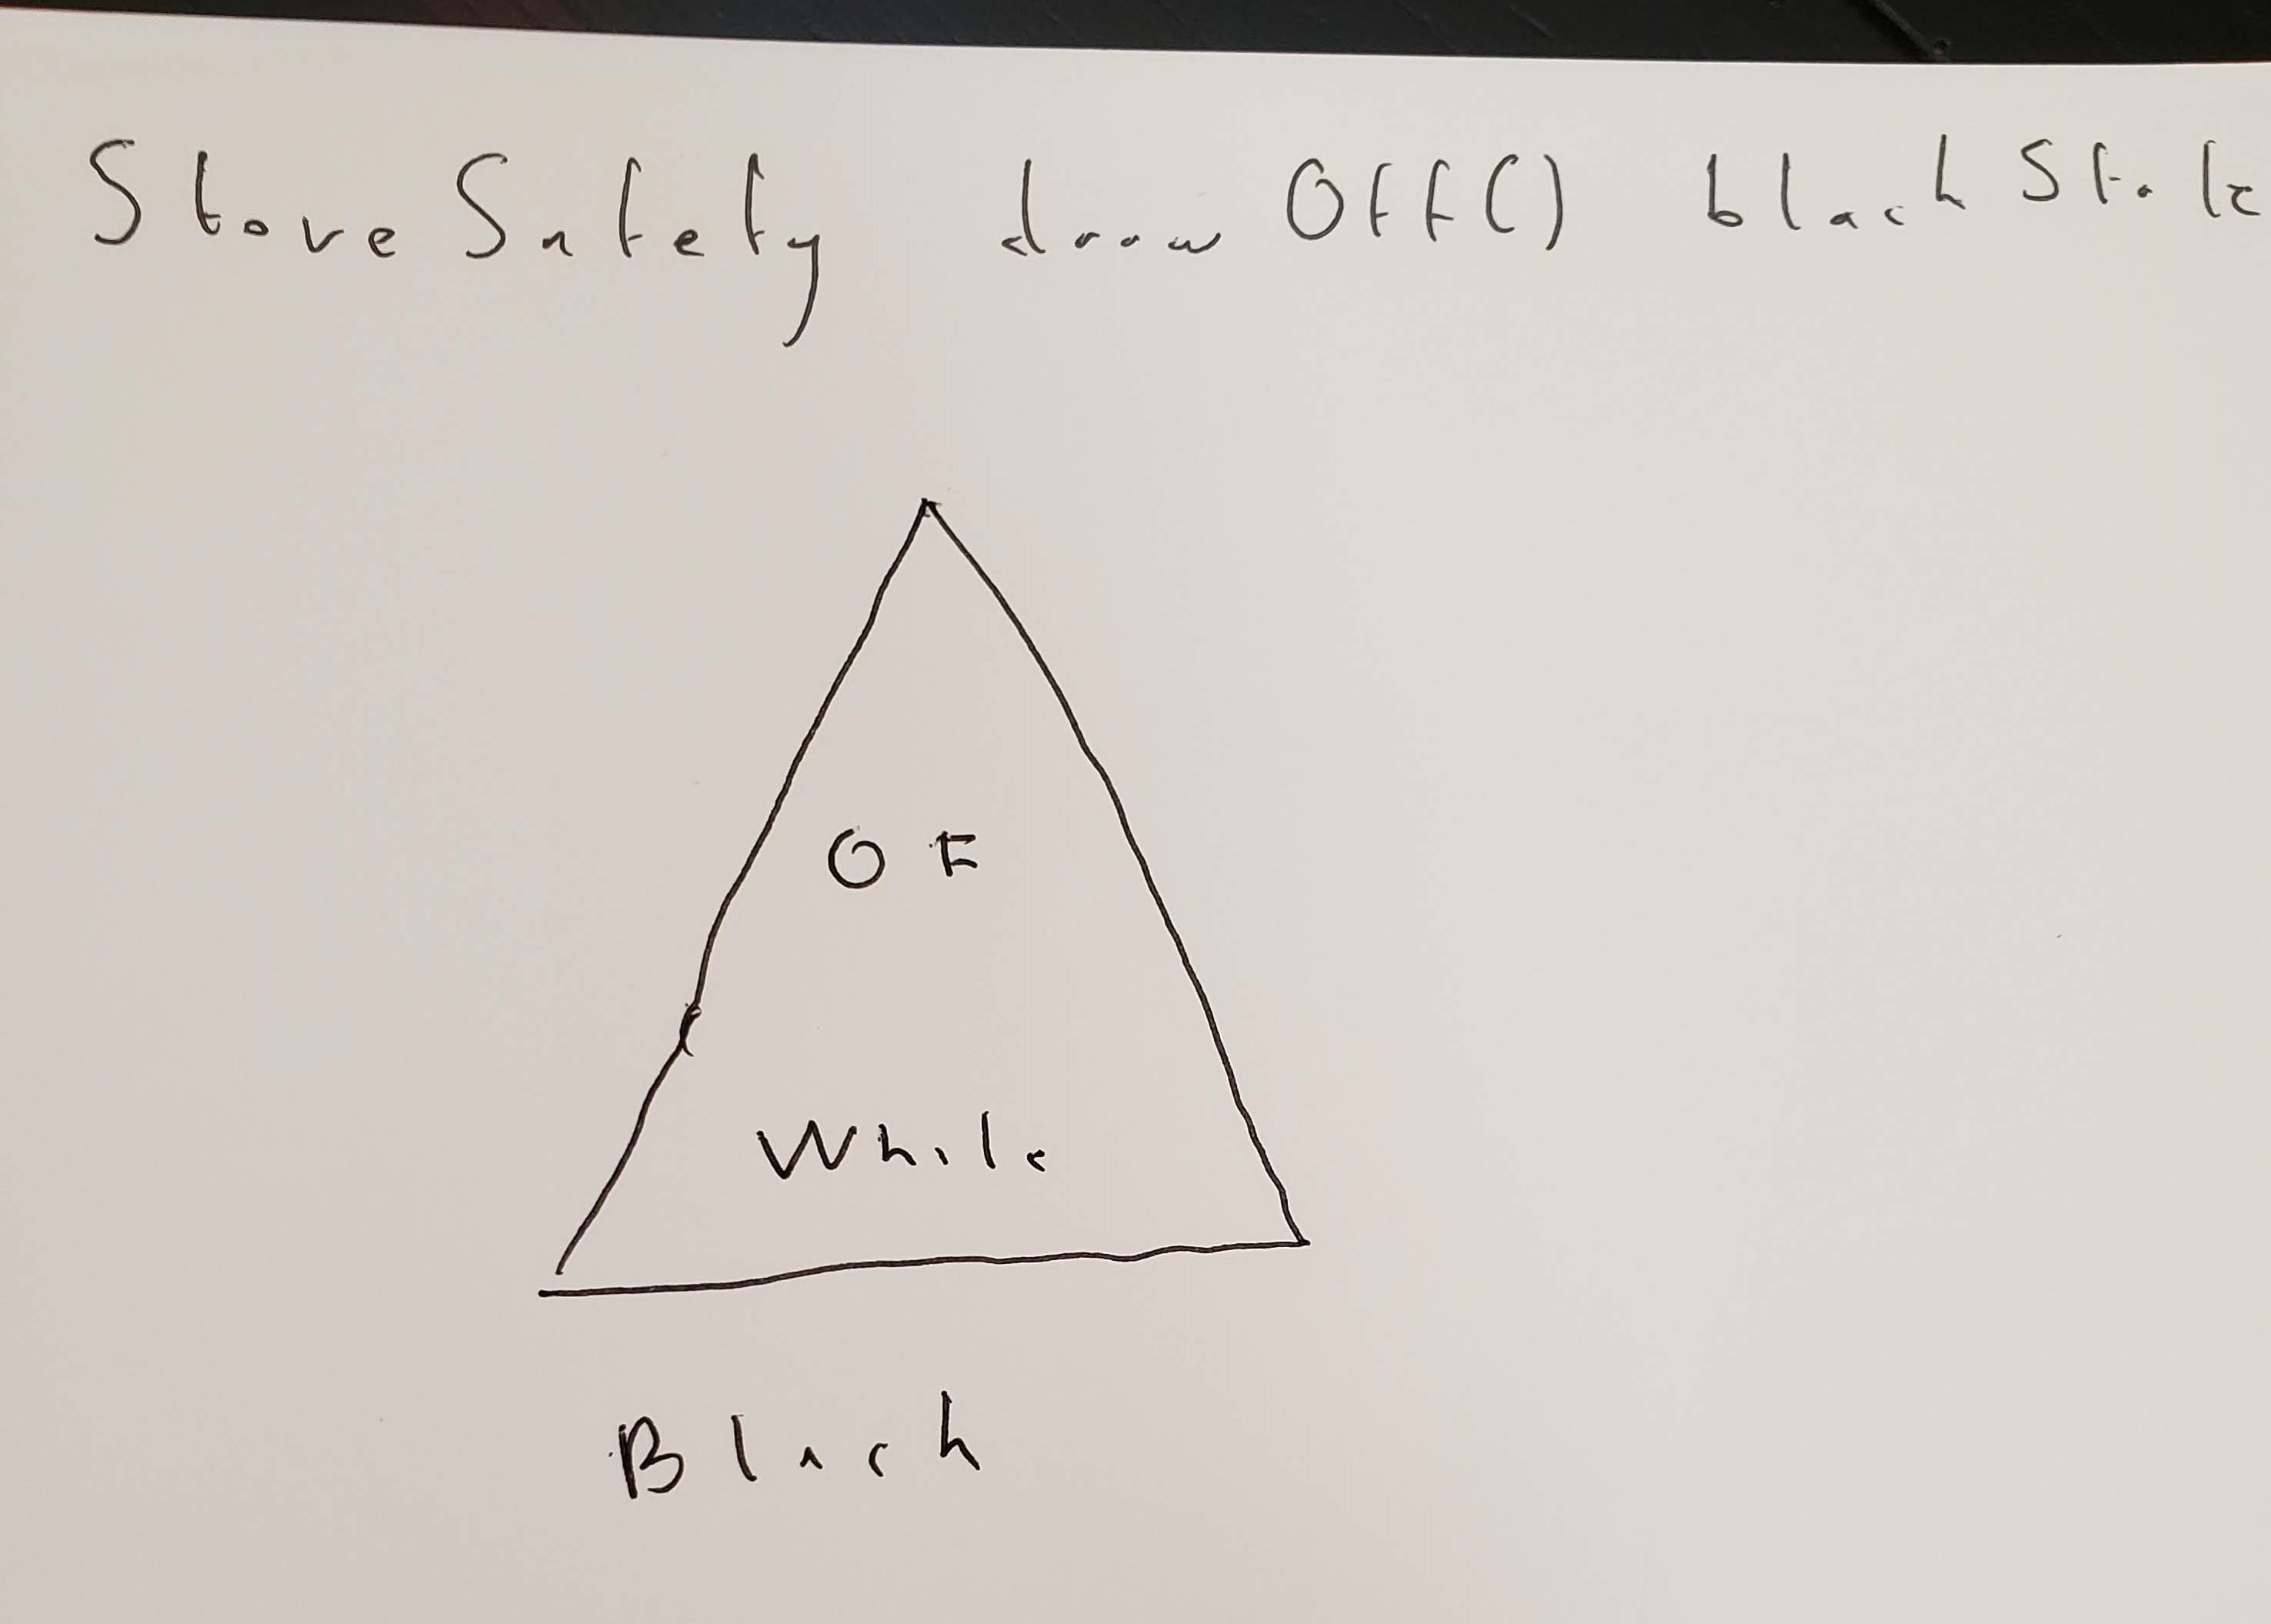 Stove Safety draw OFF() black State
OF
While
Black